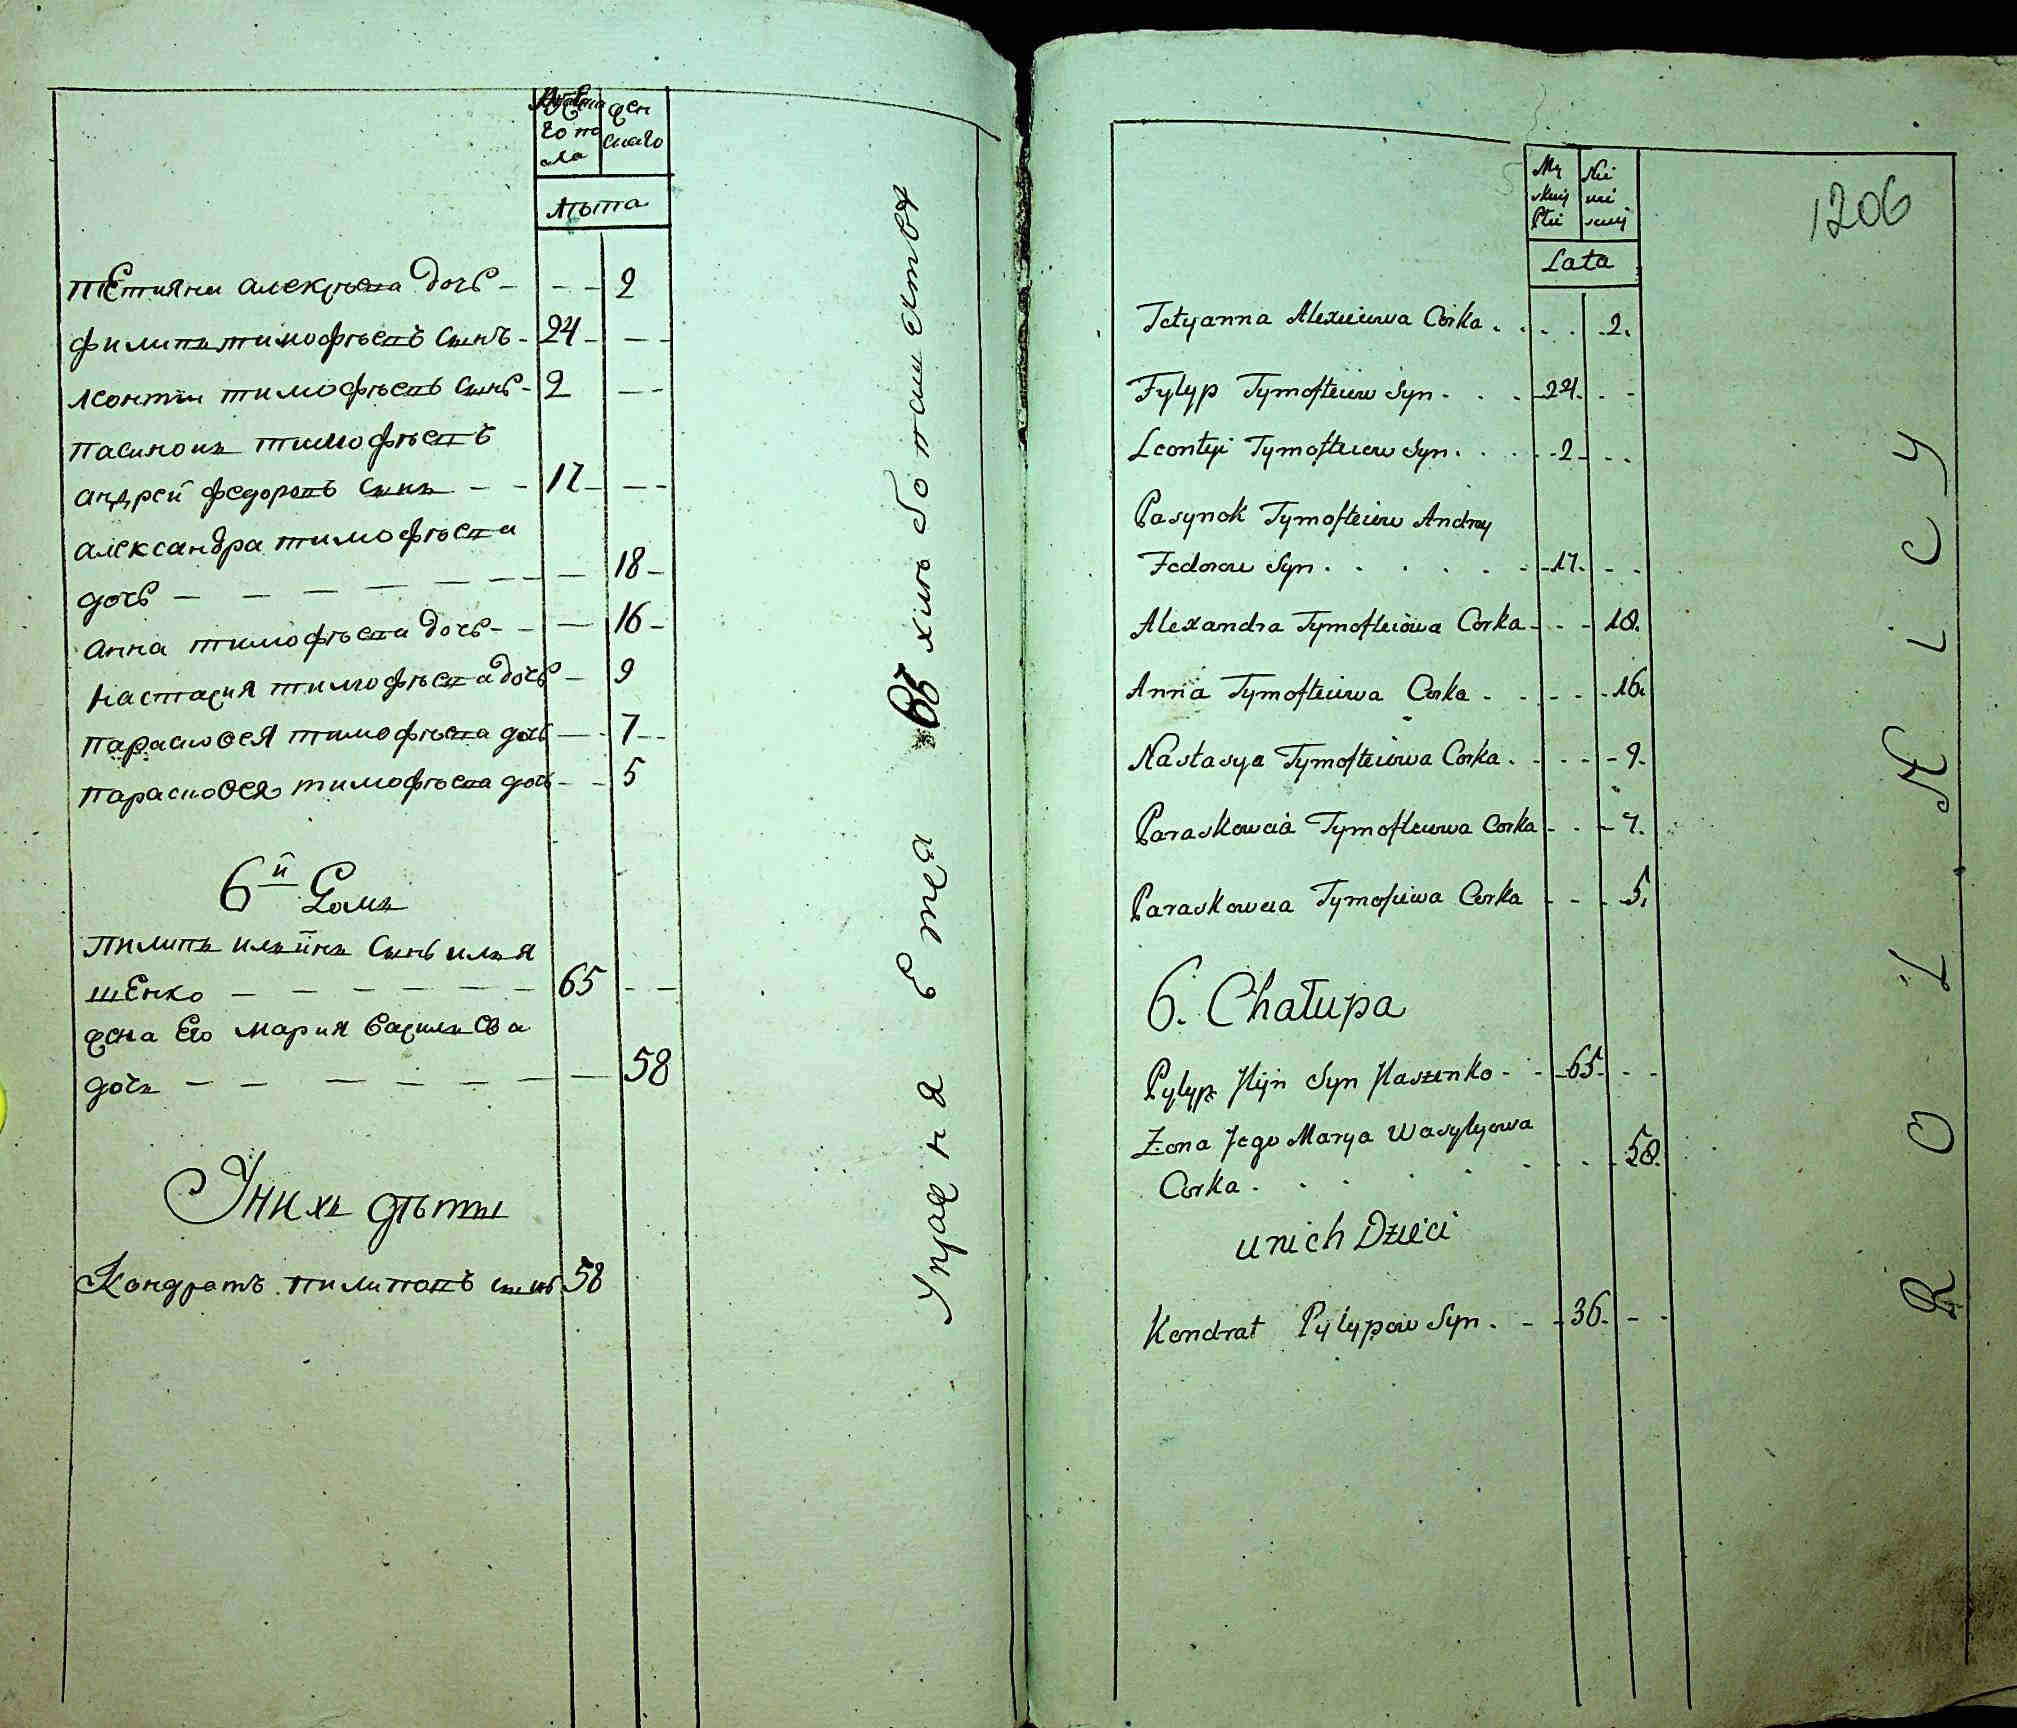 Мужеска
го по
ла
жен
скаго
лѣта
тЕтияни алексѣева дочь - - - 2
филипъ тимофѣевъ синъ - 24 - - -
леонтїи тимофѣевъ синъ - 2 - -
пасинокъ тимофѣевъ
андрей федоровъ синъ - - 17 - - -
александра тимофѣева
дочь - - - - - - - - 18 -
анна тимофѣева дочь - - - 16 -
настасия тимофѣева дочь - 9
парасковея тимофѣева дочь - - 7 - -
парасковея тимофѣева дочь - - 5
6й домъ
пилипъ илъинъ синъ илъя
шЕнко - - - - - - - 65 - -
жена Его мария василъева
дочъ - - - - - - - 58
У нихъ дѣти
Кондратъ пилиповъ синъ 58
Упражняется въ хлѣбопашествѣ
1206
Mę
skiej
Płci
Nie
wie
sciej
Lata
Tetyanna Alexieiewa Corka . . . . . 2.
Fylyp Tymofteiew Syn . . . - 24. . -
Leontyi Tymofteiew Syn . . . . - 2 - . .
Pasynok Tymofteiew Andrey
Fedorow Syn . . . . . . - 17. - .
Alexandra Tymofteiowa Corka - - - 18.
Anna Tymofteiewa Corka . - - - . 16.
Nastasya Tymofteiewa Corka . - - - - 9.
Paraskoweia Tymofteiewa Corka - . - 7.
Paraskoweia Tymofieiwa Corka - - - 5.
6. Chałupa
Pylyp Ilyin Syn Ilaszenko - - - 65. - -
Żona Jego Marya Wasylyowa
Corka . . . . . . . . 58.
u nich Dzieci
Kondrat Pylypow Syn . - - 36. - -
ROLNICY